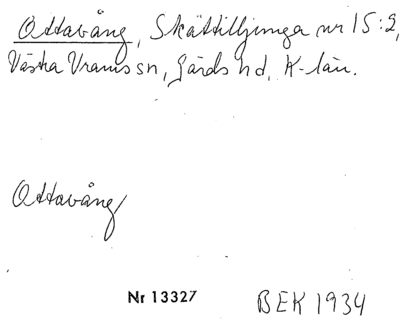 Ottavång, Skättilljunga nr 15:2,
Västra Vrams sn, Gärds hd, K-län.
Ottavång
Nr 13327 BEK 1934